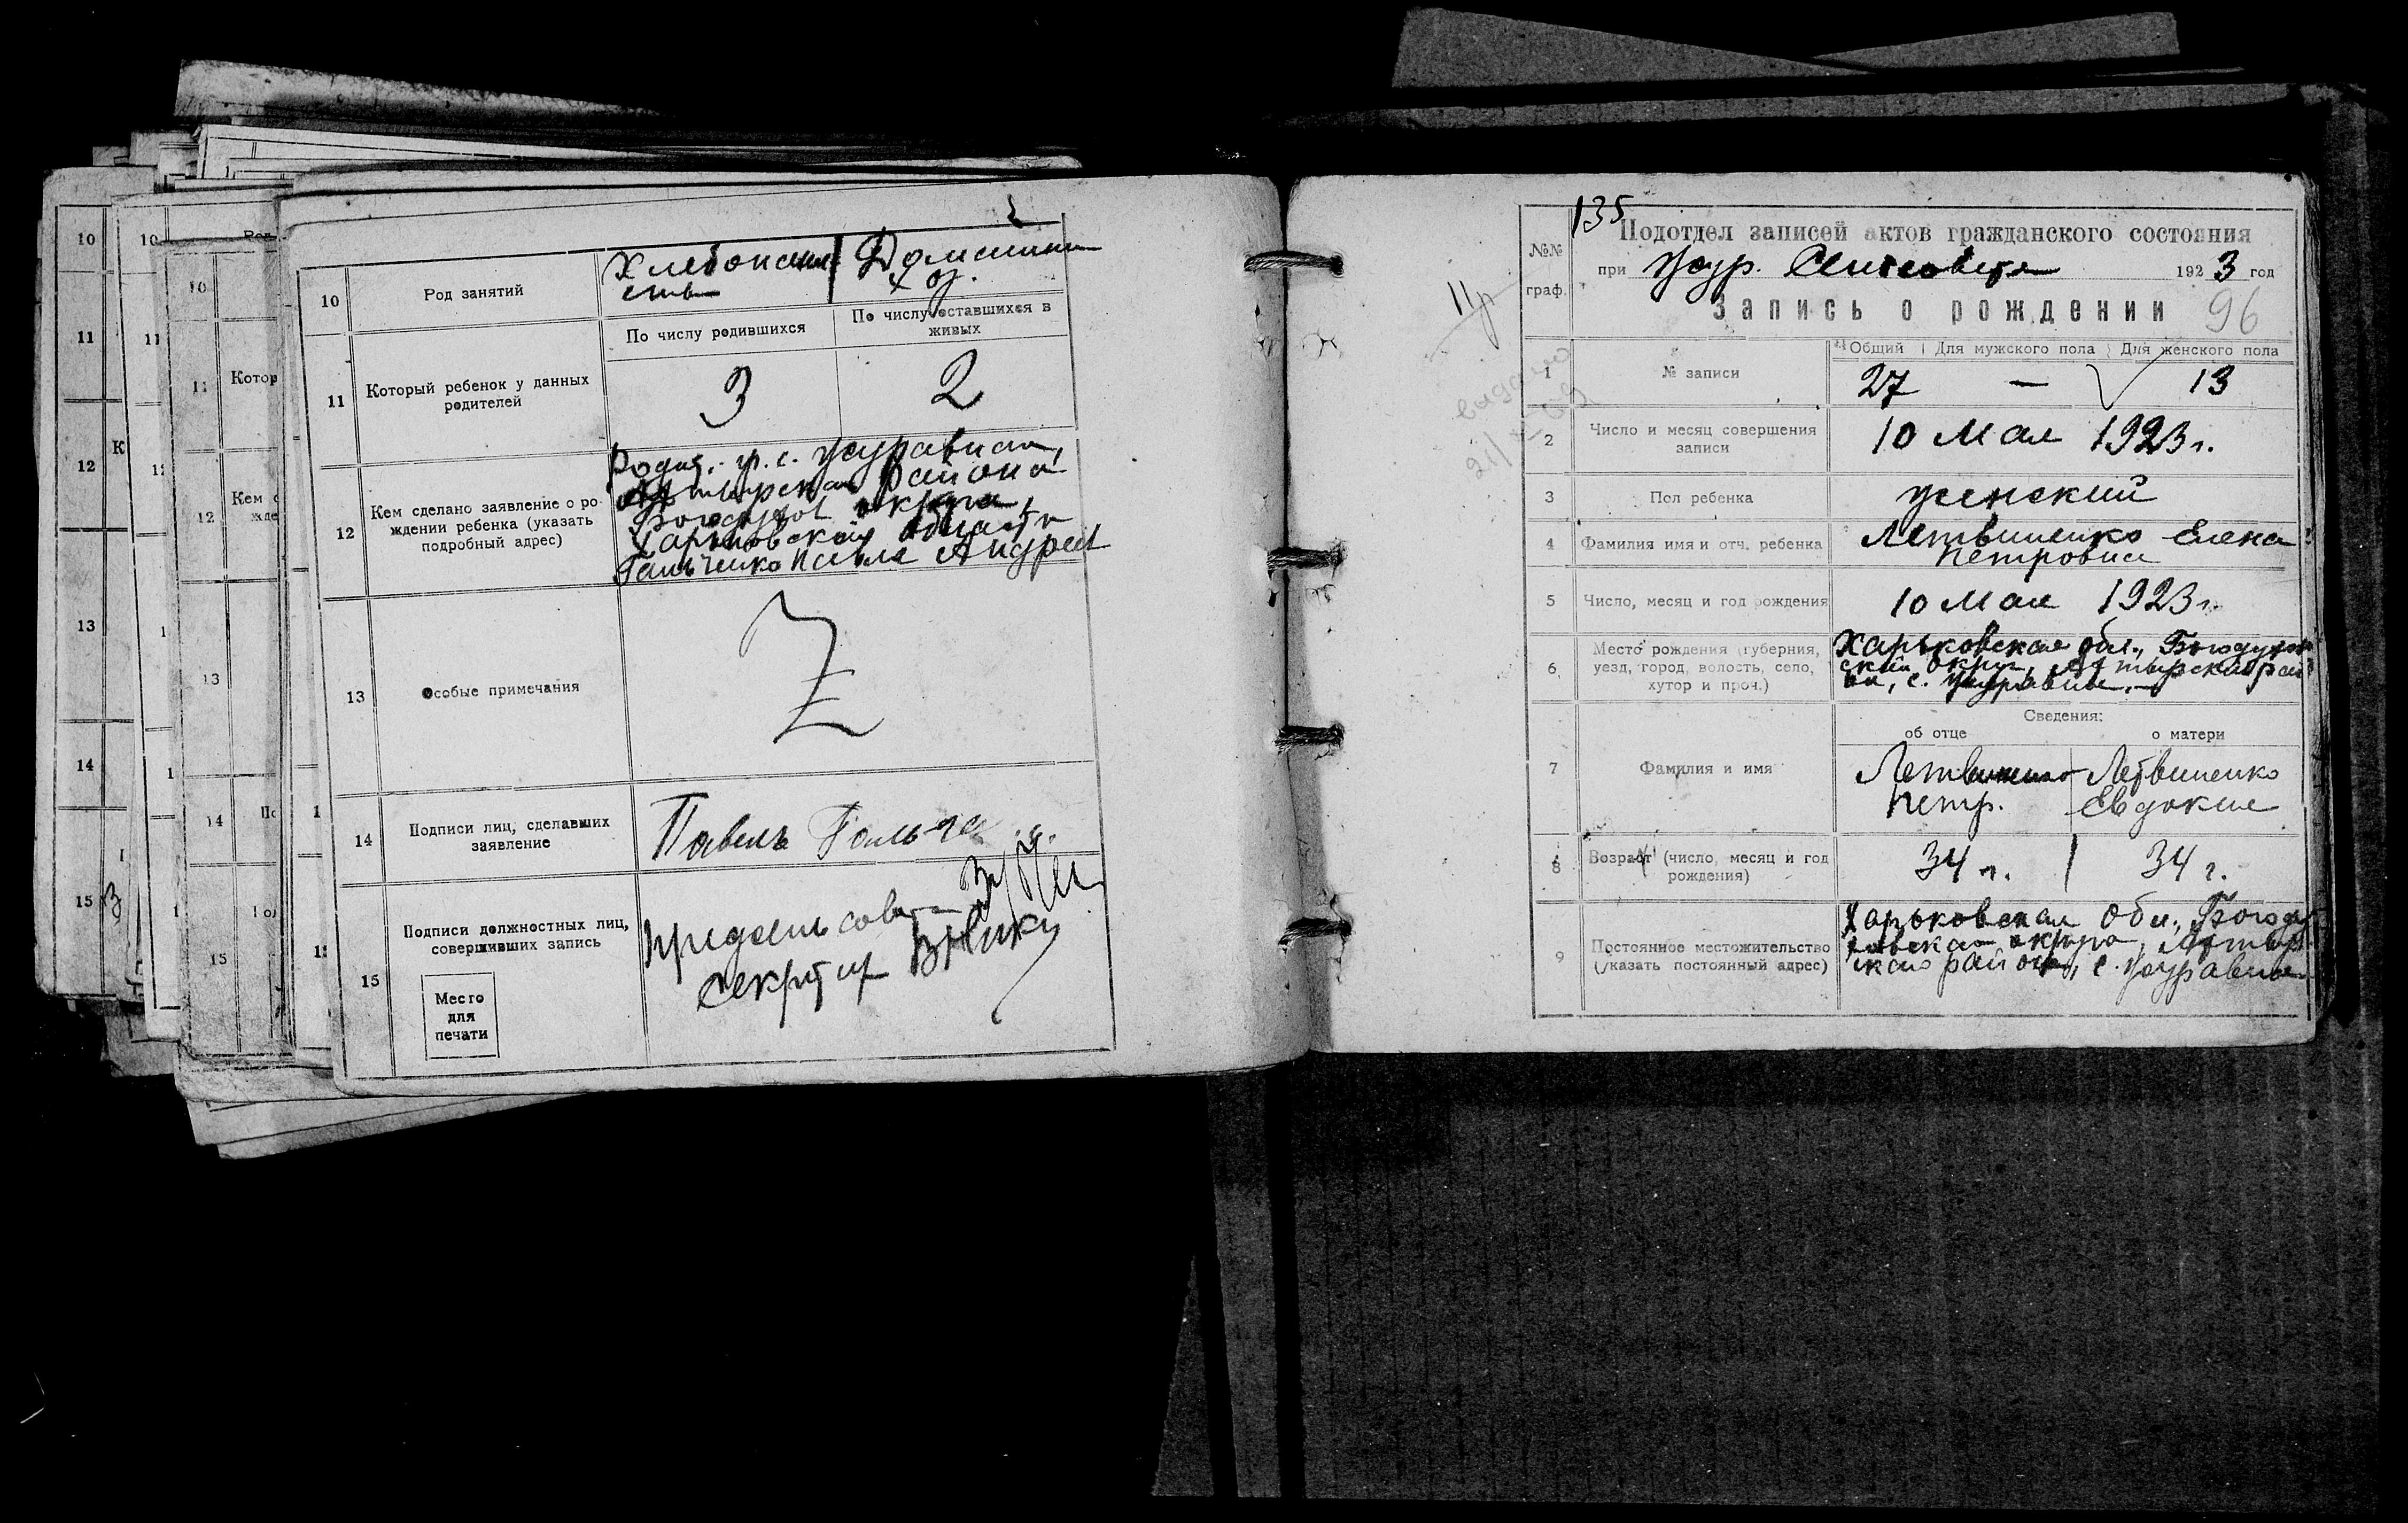 10
11
12
К
13
14
15
10
11
10
11
Котор
12
Кем с
жде
13
14
15
10
Род занятий
Хлебопаш
Домашни
хоз.
11
Который ребенок у данных
родителей
По числу родившихся
По числу оставшихся в
живых
3
2
12
Кем сделано заявление о ро-
ждении ребенка (указать
подробный адрес)
Родит. гр. с. Журавнаго,
Ахтырскаго района
Богодухов округа,
Харьковской области
Гальченко Павла Андрея
13
Особые примечания
Z
14
Подписи лиц, сделавших
заявление
Павелъ Гальче
15
Подписи должностных лиц,
совершивших запись
Место
для
печати
Предсельсовета
Секретар
135
№№
граф.
Подотдел записей актов гражданского состояния
при Жур. Сельсовета 1923 год
Запись о рождении
96
1
№ записи
Общий
Для мужского пола
Для женского пола
27
—
13
2
Число и месяц совершения
записи
10 Мая 1923 г.
3
Пол ребенка
женский
4
Фамилия имя и отч. ребенка
Летвиненко Елена
Петровна
5
Число, месяц и год рождения
10 Мая 1923 г.
6
Место рождения (губерния,
уезд, город, волость, село,
хутор и проч.)
Харьковская обл., Богодухов
ский округ, Ахтырский рай
он, с. Журавное.
7
Фамилия и имя
Сведения:
об отце
о матери
Летвиненко
Петр.
Летвиненко
Евдокия
8
Возраст (число, месяц и год
рождения)
34 г.
34 г.
9
Постоянное местожительство
(указать постоянный адрес)
Харьковская Обл., Богоду
ховская округа, Ахтыр
скаго района, с. Журавное
выдано